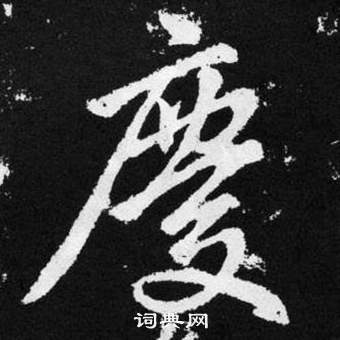 慶
词典网